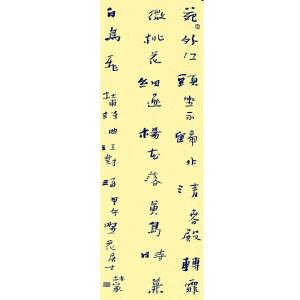 苑外江頭坐不歸水精春殿轉霏
微桃花細逐楊花落黃鳥時兼
白鳥飛
杜甫詩曲江對酒甲午花居士